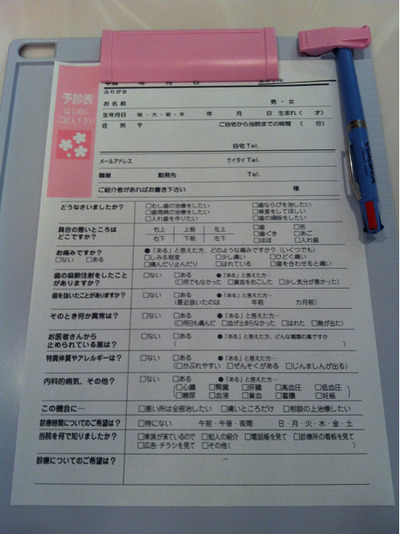 予診表
はじめに
ご記入下さい
ふりがな
お名前 男・女
生年月日 明・大・昭・平 年 月 日生まれ( 才)
住所 〒 ご自宅から当院までの時間 ( 分)
自宅 Tel.
メールアドレス ケイタイ Tel.
職業 勤務先 Tel.
ご紹介者があればお書き下さい 様
どうなさいましたか? □むし歯の治療をしたい □歯ならびを治したい
□歯周病の治療をしたい □検査をしてほしい
□入れ歯を作りたい □歯の掃除をしたい
具合の悪いところは
どこですか? 右上 上前 左上 □歯 □舌
右下 下前 左下 □歯ぐき □あご
□ほほ □入れ歯
お痛みですか? ●「ある」と答えた方、どのような痛みですか?(いくつでも)
□ない □ある □しみる程度 □少し痛い □ひどく痛い
□痛んだり止んだり □はれている □歯を合わせると痛い
歯の麻酔注射をしたこと
がありますか? □ない □ある ●「ある」と答えた方…
(□何でもなかった □貧血をおこした □少し気分が悪かった)
歯を抜いたことがありますか? □ない □ある ●「ある」と答えた方…
(□最近抜いたのは 年前 カ月前)
そのとき何か異常は? □ない □ある ●「ある」と答えた方…
(□何日も痛んだ □血が止まらなかった □はれた □熱が出た)
お医者さんから
止められている薬は? □ない □ある ●「ある」と答えた方、どんな種類の薬ですか
( )
特異体質やアレルギーは? □ない □ある ●「ある」と答えた方…
(□かぶれやすい □ぜんそくがある □じんましんが出る)
内科的病気、その他? □ない □ある ●「ある」と答えた方…
(□心臓 □腎臓 □肝臓 □高血圧 □低血圧
□糖尿 □血液 □貧血 □蓄膿 □妊娠)
この機会に… □悪い所は全部治したい □痛いところだけ □相談の上治療したい
診療時間についてのご希望は? □特にない 午前・午後・夜間 日・月・火・水・金・土
当院を何で知りましたか? □家族が来ているので □知人の紹介 □電話帳を見て □診療所の看板を見て
□広告・チラシを見て □その他( )
診療についてのご希望は?